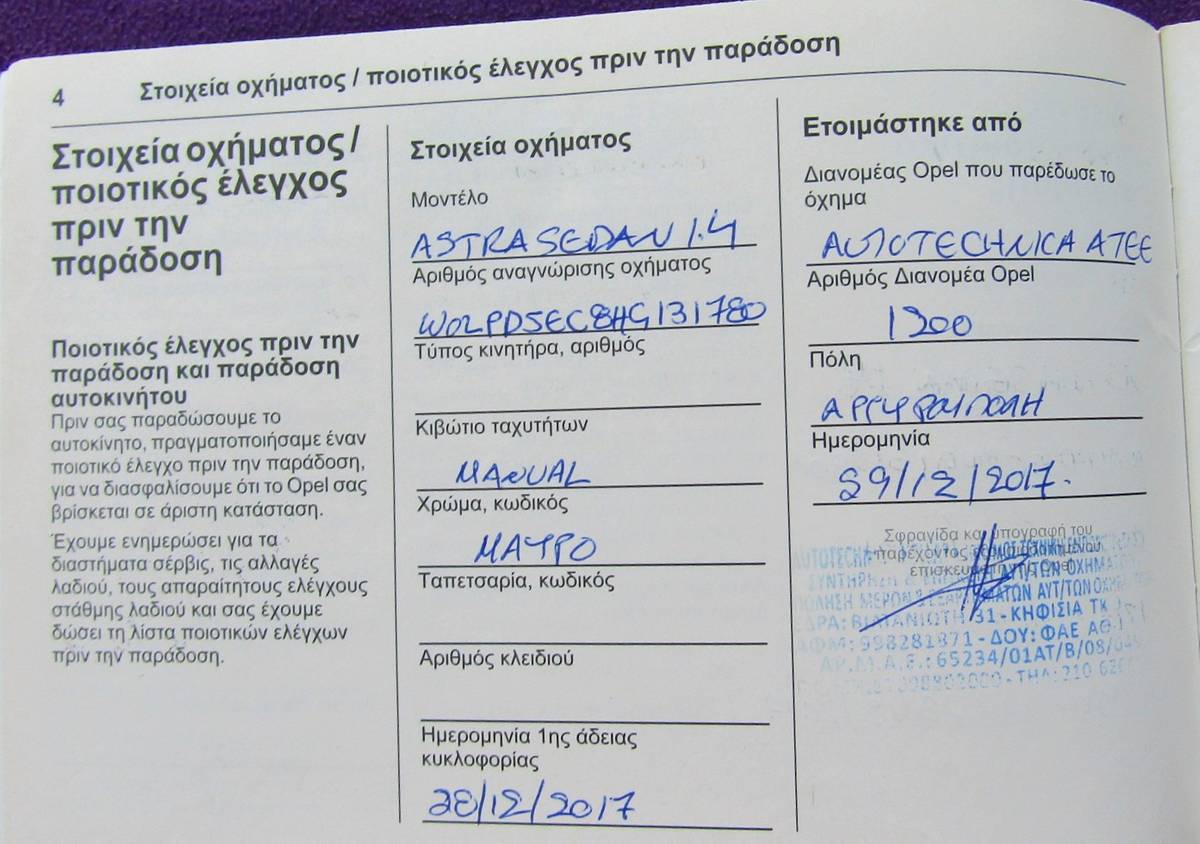 4
Στοιχεία οχήματος / ποιοτικός έλεγχος πριν την παράδοση
Στοιχεία οχήματος /
ποιοτικός έλεγχος
πριν την
παράδοση
Ποιοτικός έλεγχος πριν την
παράδοση και παράδοση
αυτοκινήτου
Πριν σας παραδώσουμε το
αυτοκίνητο, πραγματοποιήσαμε έναν
ποιοτικό έλεγχο πριν την παράδοση,
για να διασφαλίσουμε ότι το Opel σας
βρίσκεται σε άριστη κατάσταση.
Έχουμε ενημερώσει για τα
διαστήματα σέρβις, τις αλλαγές
λαδιού, τους απαραίτητους ελέγχους
στάθμης λαδιού και σας έχουμε
δώσει τη λίστα ποιοτικών ελέγχων
πριν την παράδοση.
Στοιχεία οχήματος
Μοντέλο
ASTRA SEDAN 1.4
Αριθμός αναγνώρισης οχήματος
W0LPD5EC8HG131780
Τύπος κινητήρα, αριθμός
Κιβώτιο ταχυτήτων
MANUAL
Χρώμα, κωδικός
ΜΑΥΡΟ
Ταπετσαρία, κωδικός
Αριθμός κλειδιού
Ημερομηνία 1ης άδειας
κυκλοφορίας
28/12/2017
Ετοιμάστηκε από
Διανομέας Opel που παρέδωσε το
όχημα
AUTOTECHNICA ATEE
Αριθμός Διανομέα Opel
1200
Πόλη
ΑΡΓΥΡΟΥΠΟΛΗ
Ημερομηνία
29/12/2017.
Σφραγίδα και υπογραφή του
παρέχοντος
ΣΥΝΤΗΡΗΣΗ & ΑΥΤ/ΤΩΝ ΟΧΗΜΑΤ
ΠΩΛΗΣΗ ΜΕΡΩΝ & ΕΞΑΡ ΑΥΤ/ΤΩΝ ΟΧΗ
31 - ΚΗΦΙΣΙΑ ΤΚ
ΑΦΜ: 998281871 - ΔΟΥ: ΦΑΕ ΑΘ
ΑΡ.Μ.Α.Ε.: 65234/01ΑΤ/Β/08/
ΤΗΛ: 210